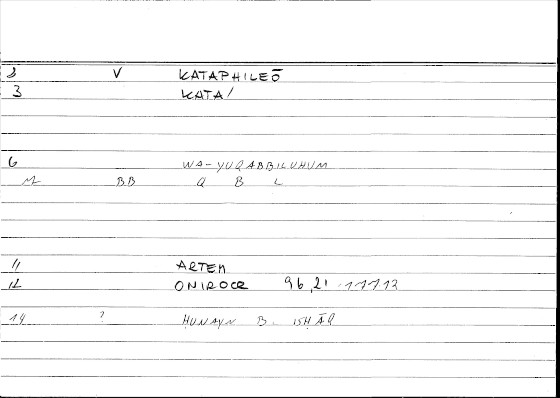 2 V KATAPHILEŌ
3 KATA/
6 WA-YUQABBILUHUM
M BB Q B L
11 ARTEM
12 ONIROCR 96,21
14 ? ḤUNAYN B. ISḤĀQ